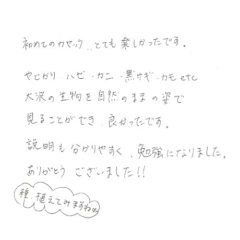 初めてのカヤック、とても楽しかったです。
やどかり・ハゼ・カニ・黒サギ・カモ etc
大浜の生物を自然のままの姿で
見ることができ、良かったです。
説明も分かりやすく、勉強になりました。
ありがとうございました!!
種、植えてみますね